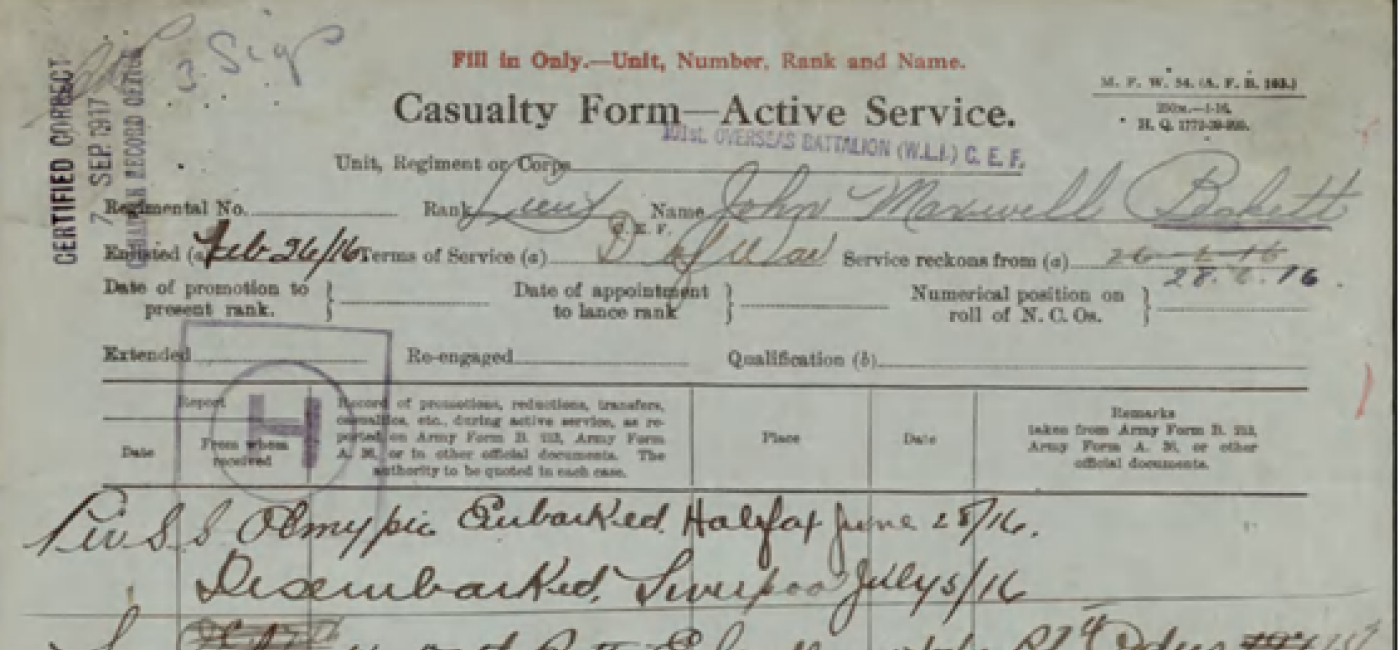 3. Sigs
CERTIFIED CORRECT
7 SEP 1917
CANADIAN RECORD OFFICE
Fill in Only.—Unit, Number, Rank and Name.
M. F. W. 54. (A. F. B. 103.)
Casualty Form—Active Service.
250m.—1-16.
H. Q. 1772-39-920.
101st. OVERSEAS BATTALION (W.L.I.) C. E. F.
Unit, Regiment or Corps
Regimental No. Rank Lieut Name John Maxwell Beckett
C. E. F.
Enlisted (a) Feb 26/16 Terms of Service (a) D of War Service reckons from (a) 26-2-16
28. 6. 16.
Date of promotion to present rank. Date of appointment to lance rank Numerical position on roll of N. C. Os.
Extended Re-engaged Qualification (b)
H
Report
Date
From whom received
Record of promotions, reductions, transfers,
casualties, etc., during active service, as re-
ported on Army Form B. 213, Army Form
A. 36, or in other official documents. The
authority to be quoted in each case.
Place
Date
Remarks
taken from Army Form B. 213,
Army Form A. 36, or other
official documents.
Per S S Olmypic Embarked Halifax June 28/16.
Disembarked Liverpool July 5/16